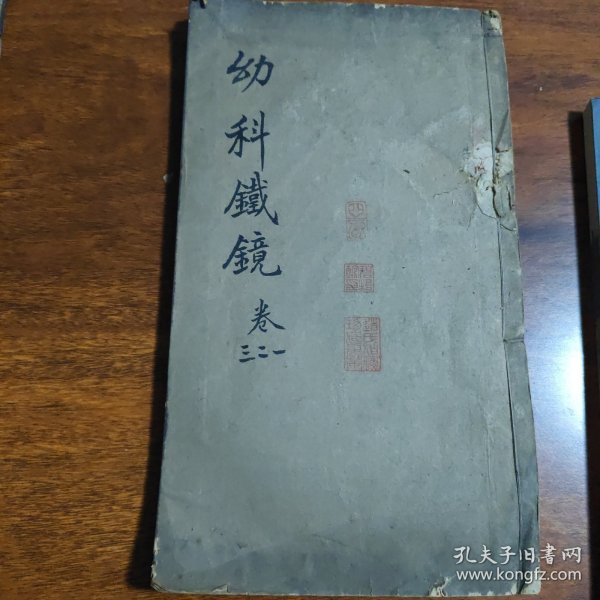 幼科鐵鏡
卷
一二三
孔夫子旧书网
www.kongfz.com